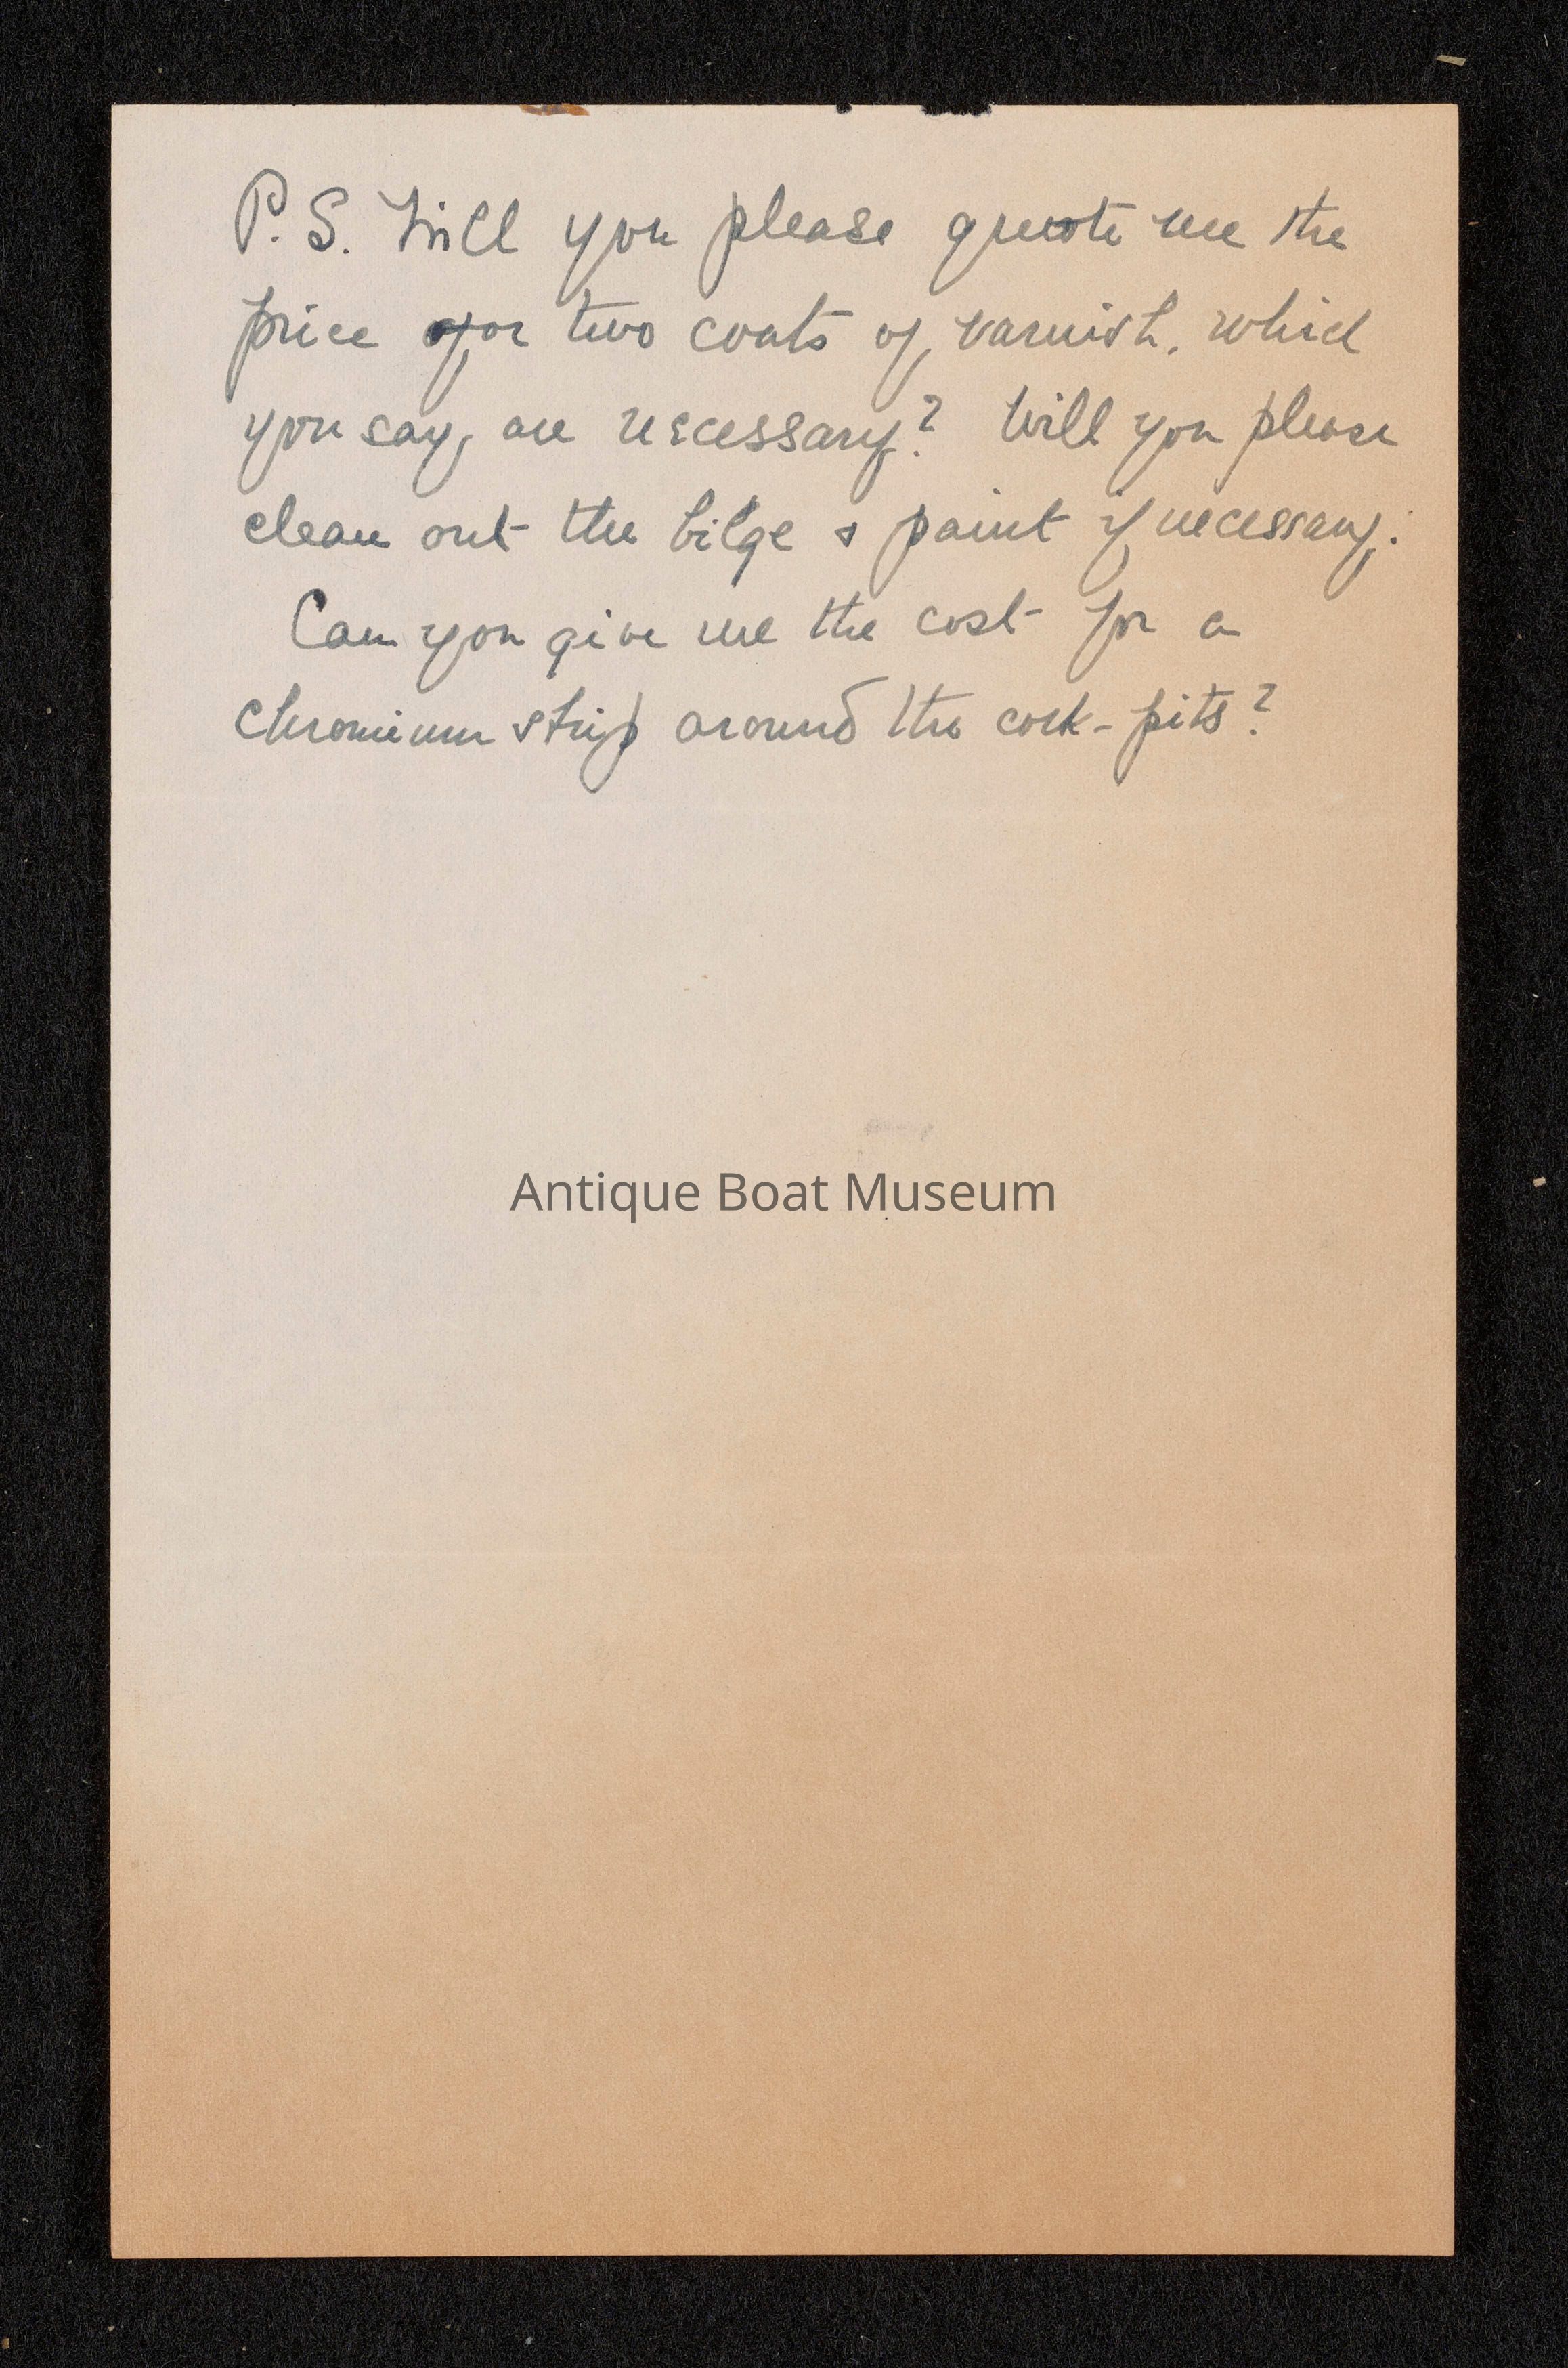 P.S. Will you please quote me the
price for two coats of varnish, which
you say, are necessary? Will you please
clean out the bilge & paint if necessary.
Can you give me the cost for a
chromium strip around the cock-pits?
Antique Boat Museum